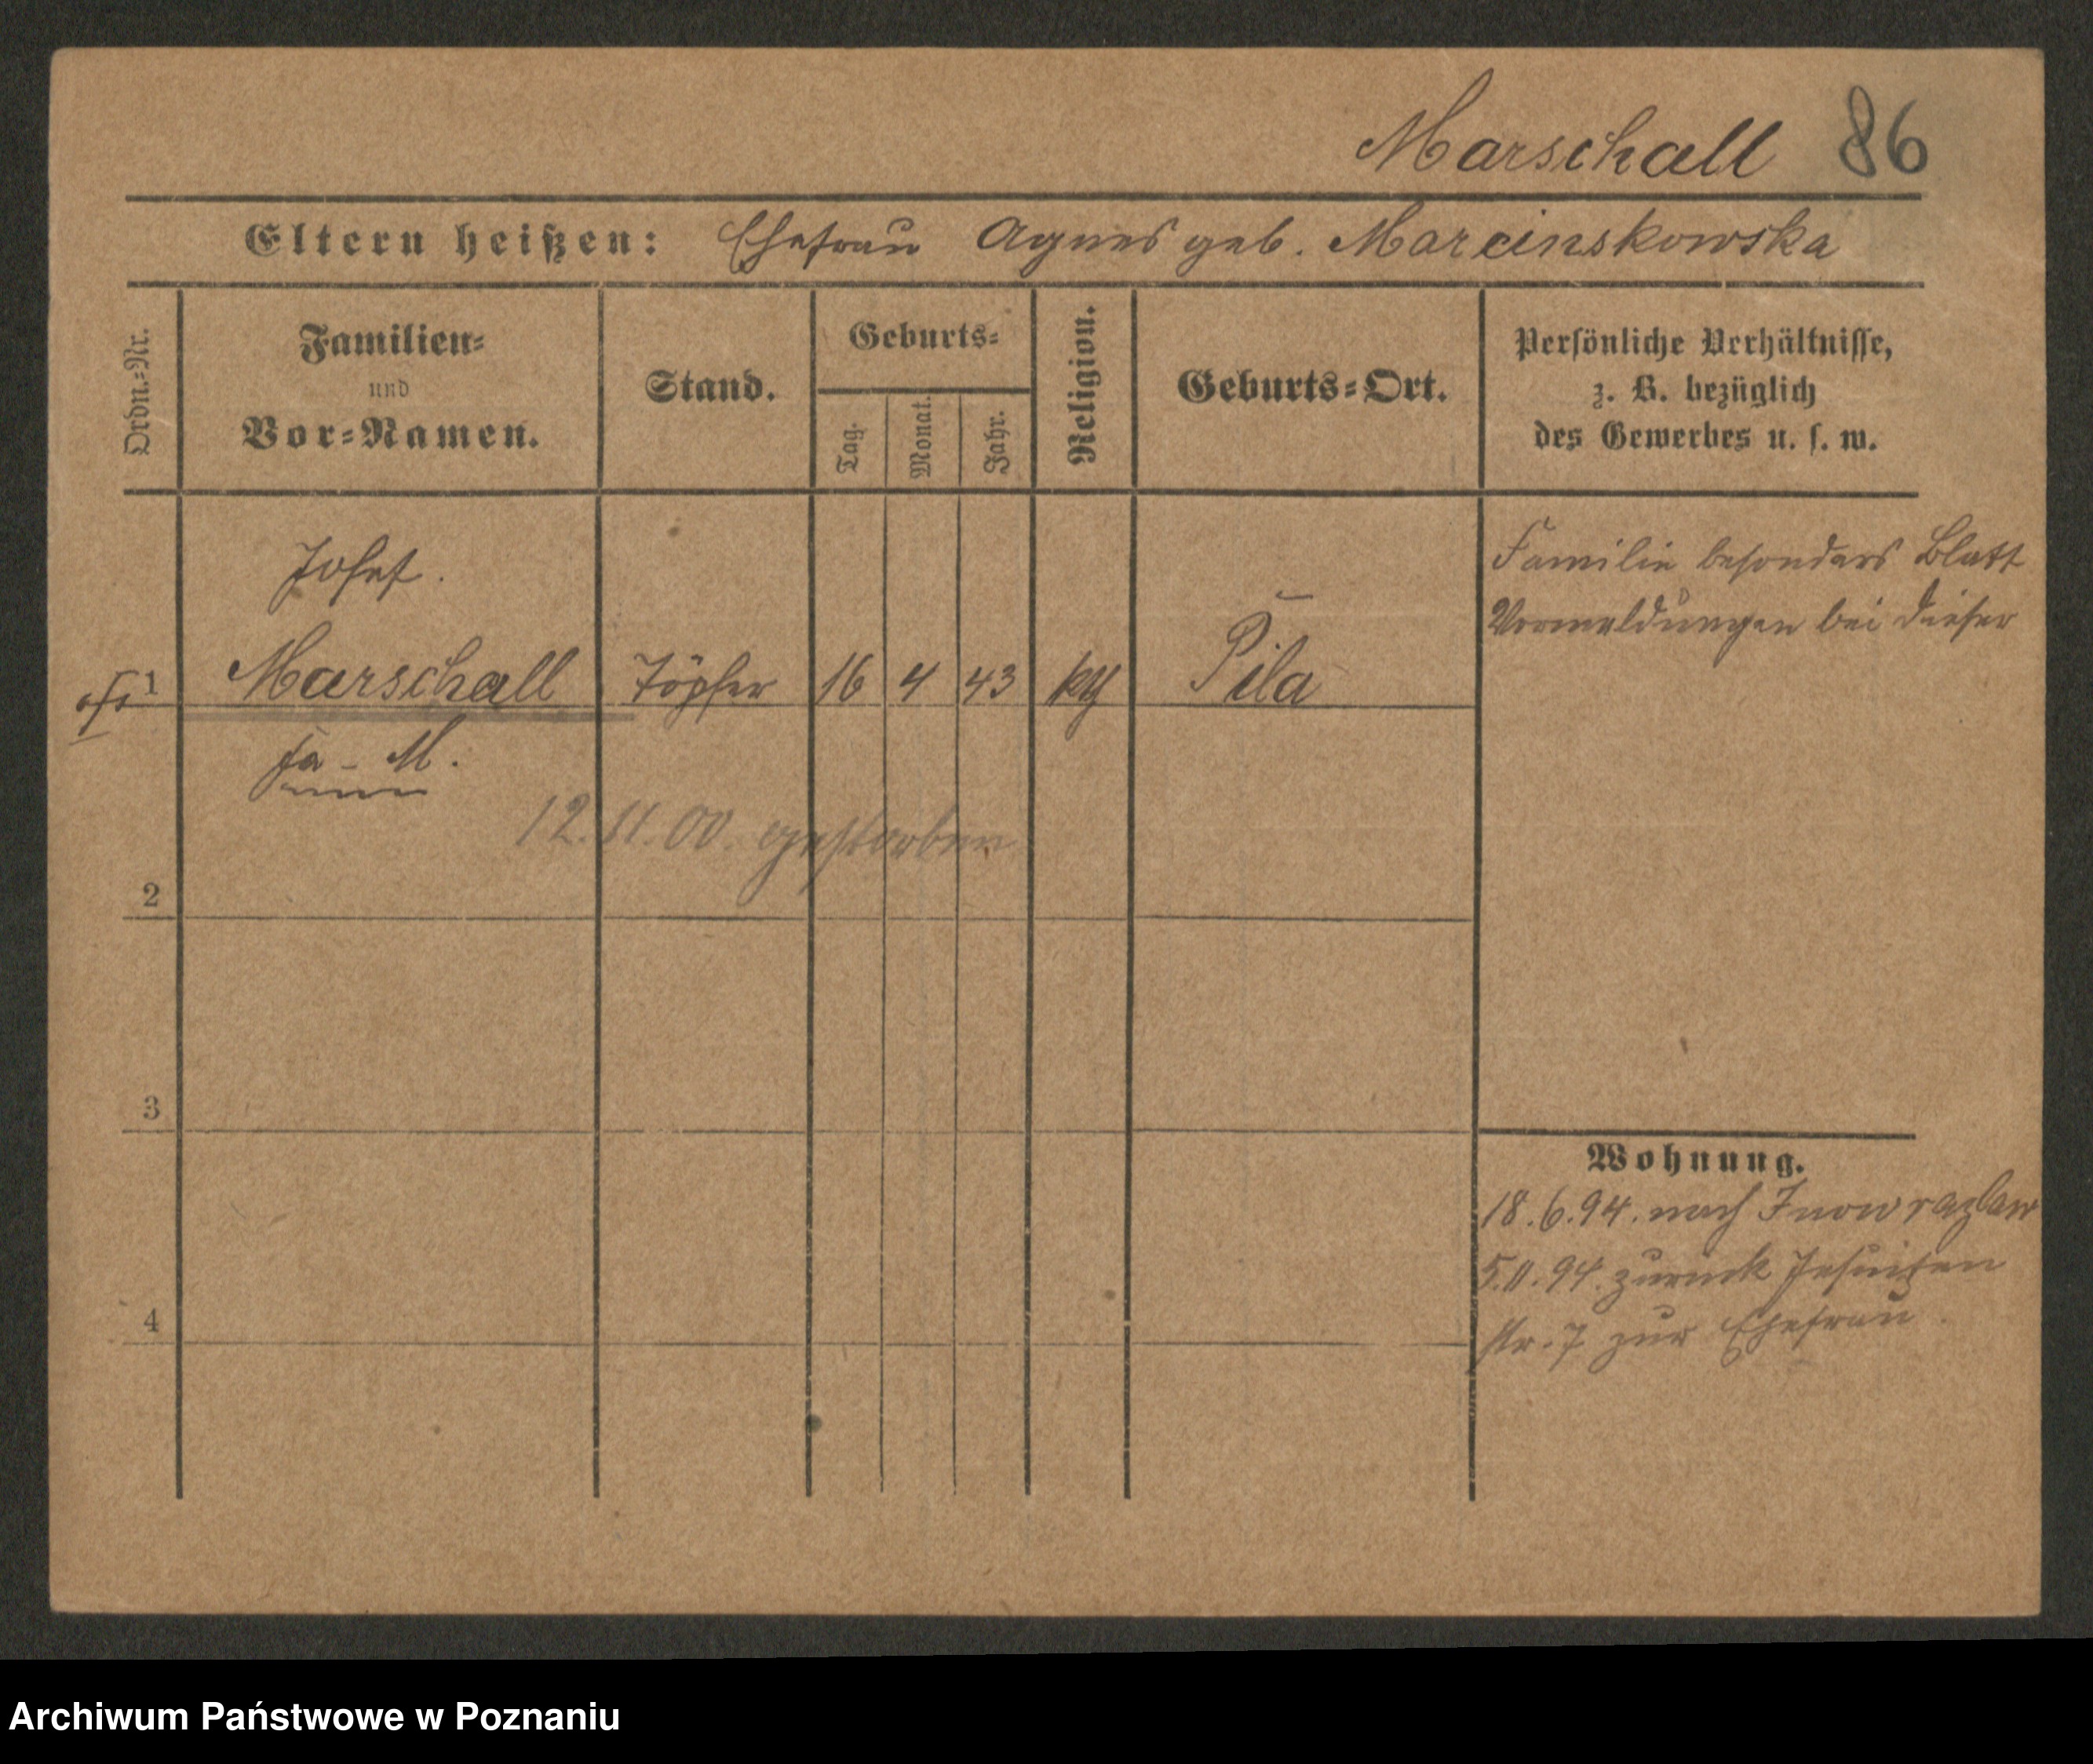 Marschall 86
Eltern heißen: Ehefrau Agnes geb. Marcinskowska
Ordn.=Nr.
Familien=
und
Vor=Namen.
Stand.
Geburts=
Tag.
Monat.
Jahr.
Religion.
Geburts=Ort.
Persönliche Verhältnisse,
z. B. bezüglich
des Gewerbes u. s. w.
Josef.
1 Marschall Töpfer 16 4 43 kth Pila
Familie besonders Blatt
Vormeldungen bei dieser
M.
12.11.00. gestorben
2
3
4
Wohnung.
18.6.94. nach Inowrazlaw
5.11.94. zurück Jesuiten
str. 7 zur Ehefrau.
Archiwum Państwowe w Poznaniu